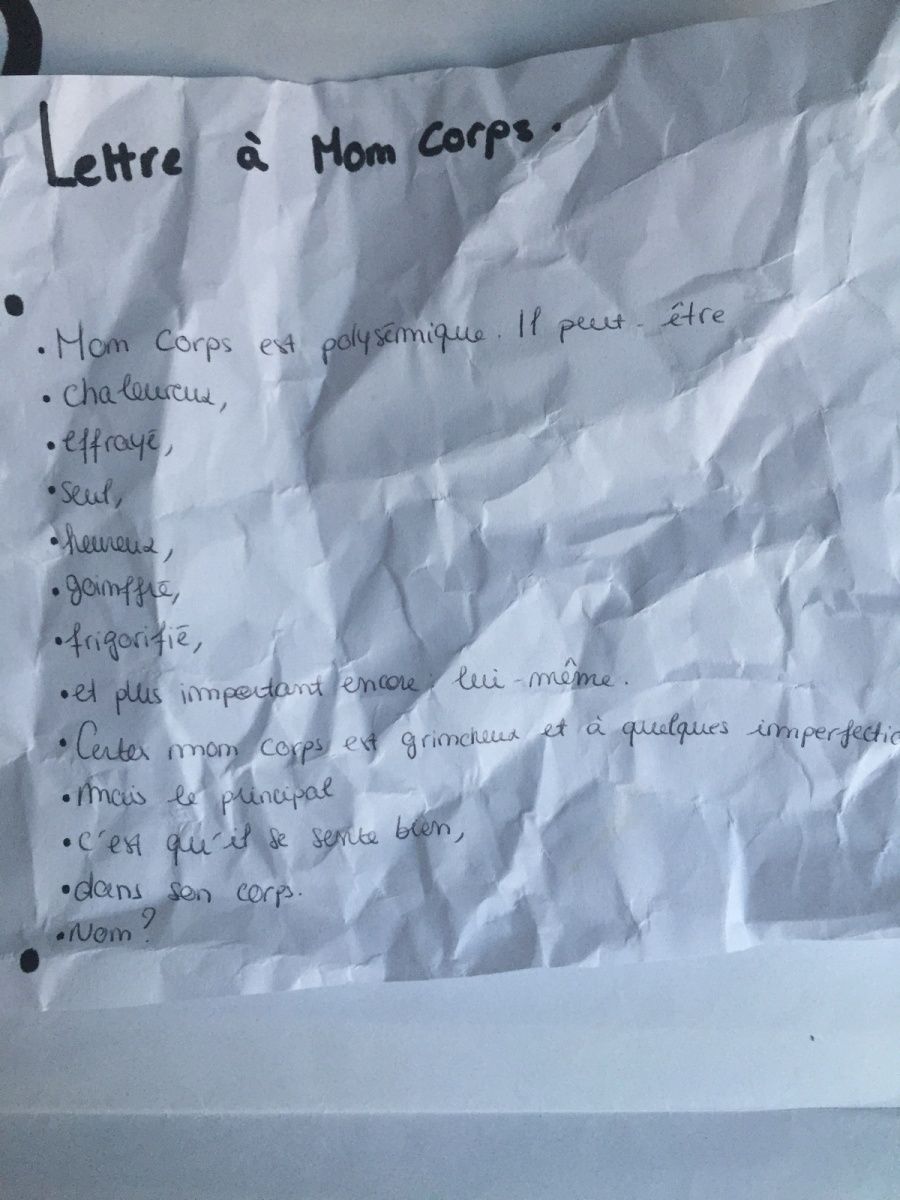 Lettre à Mon Corps.
• Mon Corps est polysémique. Il peut-être
• chaleureux,
• effrayé,
• seul,
• heureux,
• goinffré,
• frigorifié,
• et plus important encore : lui-même.
• Certes mon corps est grincheux et à quelques imperfectio
• mais le principal
• c'est qu'il se sente bien,
• dans son corps.
• Non ?